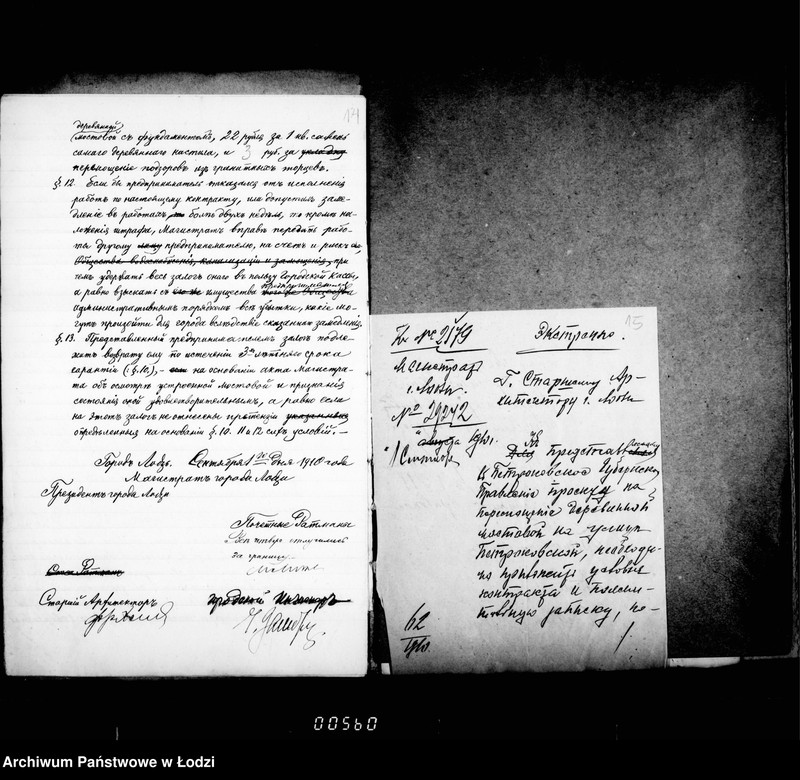 14
деревянной
мостовой съ фундаментомъ, 22 рубля за 1 кв. сажень
самаго деревяннаго настила, и 3 руб. за укладку
перемощеніе подзоровъ изъ гранитныхъ торцевъ.
§. 12. Если бы предприниматель отказался отъ исполненія
работъ по настоящему контракту, или допустилъ заме-
дленіе въ работахъ, болѣе двухъ недѣль, то кромѣ на-
ложенія штрафа, Магистратъ вправѣ передать рабо-
ты другому предпринимателю, на счетъ и рискъ
Общества водоснабженія, канализаціи и замощенія, при
чемъ удержать весь залогъ онаго въ пользу Городской Кассы,
предпринимателя
а равно взыскать съ имущества того же Общества
административнымъ порядкомъ всѣ убытки, какіе мо-
гутъ произойти для города вслѣдствіе сказаннаго замедленія.
§. 13. Представленный предпринимателемъ залогъ подле-
житъ возврату ему по истеченіи 3-лѣтняго срока
гарантіи (§. 10.), на основаніи акта Магистра-
та объ осмотрѣ устроенной мостовой и признанія
состоянія оной удовлетворительнымъ, а равно если
на этотъ залогъ не отнесены претензіи указанныя
опредѣленныя на основаніи §. 10. 11 и 12 сихъ условій.
Городъ Лодзь. Сентября дня 1910 года
Магистратъ города Лодзи
Президентъ города Лодзи
Почетные Ратманы
за границу
Старшій Архитекторъ
Городской Инженеръ
15
К № 2179
Экстрачно.
Магистратъ
г. Лодзи.
Г. Старшему Ар-
хитектору г. Лодзи
№ 29042
августа 1910 г.
Сентября
Для представленія
въ Петроковское Губернское
Правленіе проекта на
перемощеніе деревянной
мостовой на улицѣ
Петроковской, необходи-
мо приложить условія
контракта и поясни-
тельную записку, по-
62
1910
00560
Archiwum Państwowe w Łodzi